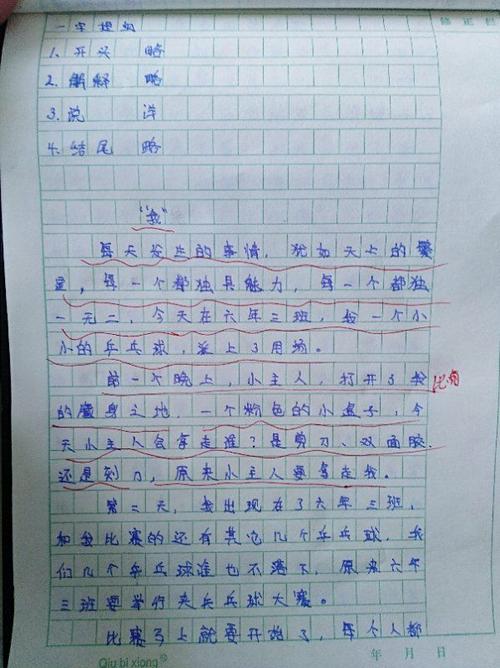 修正栏
一字提纲
1. 开头 略
2. 解释 略
3. 说 详
4. 结尾 略
“我”
每天发生的事情,犹如天上的繁
星,每一个都独具魅力,每一个都独
一无二,今天在六年三班,我一个小
小的乒乓球,派上了用场。
前一个晚上,小主人,打开了我
的藏身之地,一个粉色的小盒子,今
天小主人会拿走谁?是剪刀、双面胶、
还是刻刀,原来小主人要拿走我。
第二天,我出现在了六年三班,
和我比赛的还有其它几个乒乓球,我
们几个乒乓球谁也不落下,原来六年
三班要举行夹乒乓球大赛。
比赛马上就要开始了,每个人都
Qiu bi xiong
年 月 日